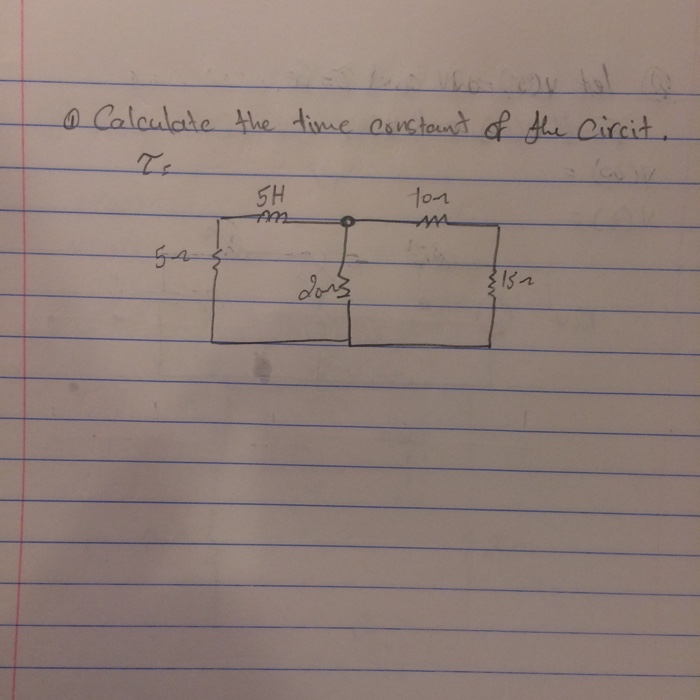 ① Calculate the time constant of the circit.
τ=
5H 10Ω
5Ω 20Ω 15Ω